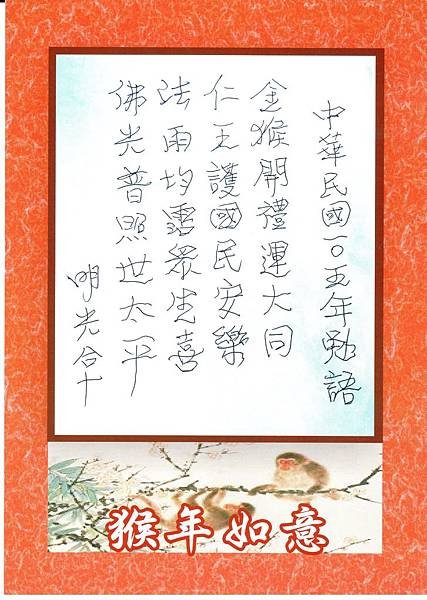 中華民國一０五年勉語
金猴開禮運大同
仁王護國民安樂
法雨均霑眾生喜
佛光普照世太平
明光合十
猴年如意